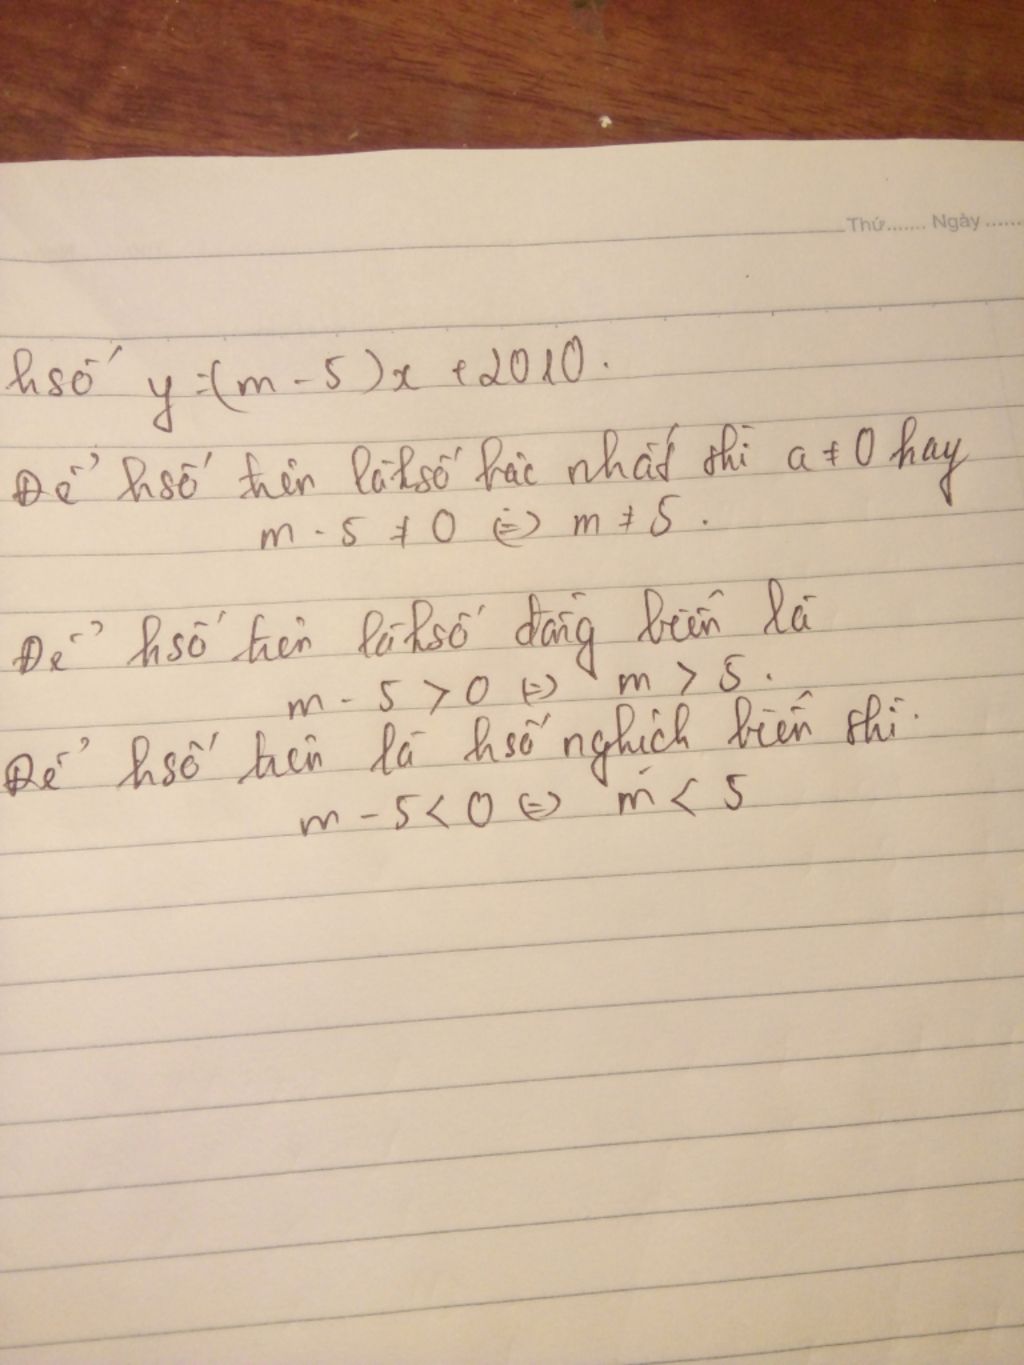 Thứ....... Ngày ......
hsố y=(m-5)x+2010.
Để hsố trên là hsố bậc nhất thì a≠0 hay
m-5≠0 <=> m≠5.
Để hsố trên là hsố đồng biến là
m-5>0 <=> m>5.
Để hsố trên là hsố nghịch biến thì.
m-5<0 <=> m<5